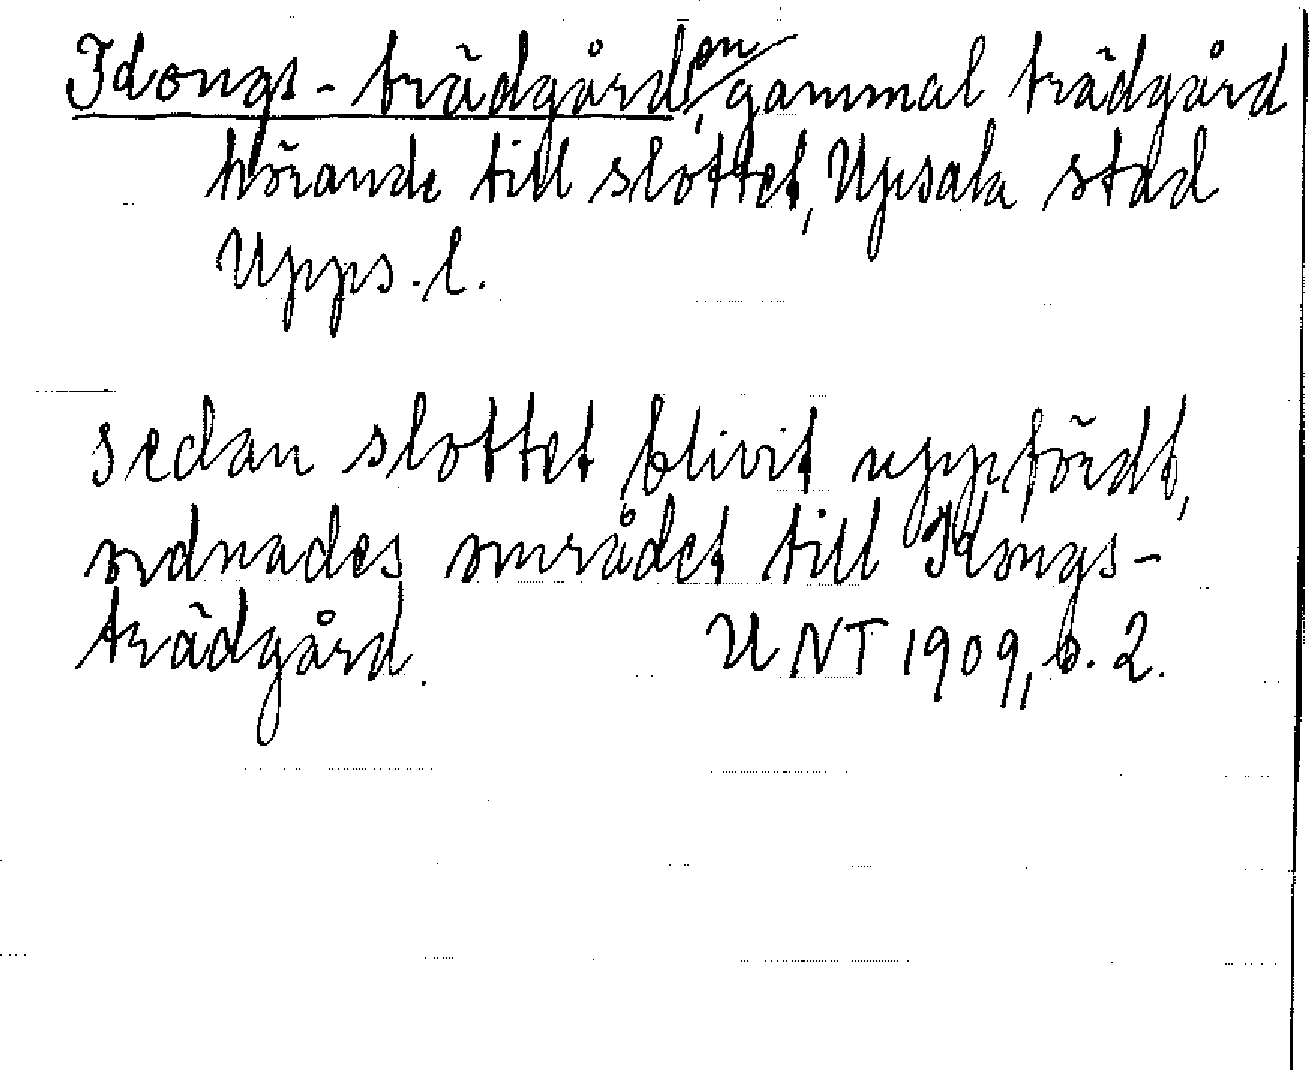 Idongs-trädgård, en gammal trädgård
hörande till slottet, Upsala stad
Upps. l.
sedan slottet blivit uppfördt,
ordnades området till Idongs-
trädgård. UNT 1909, b. 2.